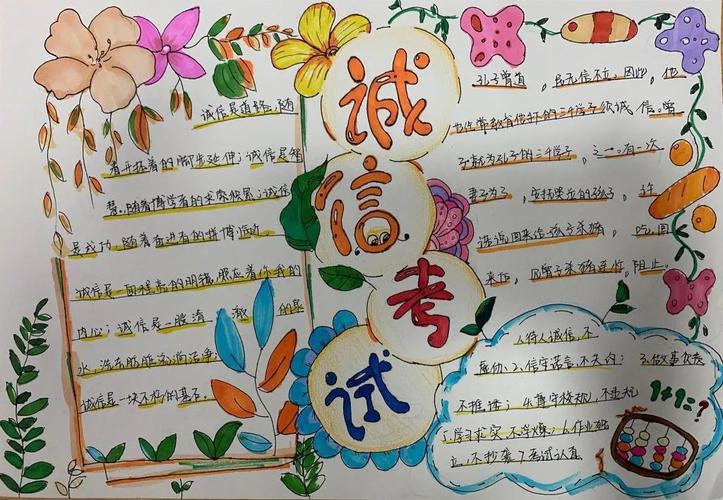 诚信考试
诚信是道路，随
着开拓者的脚步延伸；诚信是智
慧，随着博学者的求索积累；诚信
是成功，随着奋进者的拼搏临近
诚信是一面程亮的明镜，照应着你我的
内心；诚信是一股清 澈 的泉
水，洗去肮脏
诚信是一块不朽的基石
孔子曾道 ，民无信不立。因此，他
也也常教育他样的三千学子 诚 信。曾
子就为孔子的三千学子 之一。有一次
妻子为了 安抚哭闹的孩子 ，许
诺说回来给孩子杀猪 ，吃。回
来后， 曾子杀猪 ，阻止。
1.待人诚信，不
2.信守诺言，不失约； 3.做事负责
不推诿； 4.遵守校规，不违规
5.学习求实，不浮燥；6.作业独
立，不抄袭 7.考试认真
1+1=?